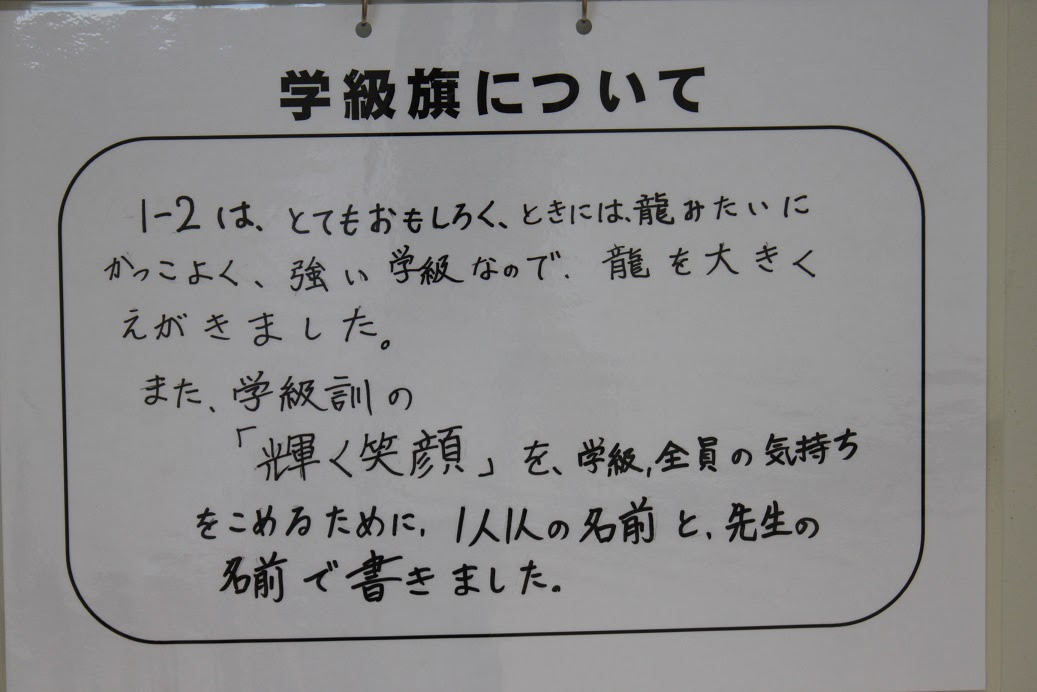 学級旗について
1-2は、とてもおもしろく、ときには、龍みたいに
かっこよく、強い学級なので、龍を大きく
えがきました。
また、学級訓の
「輝く笑顔」を、学級,全員の気持ち
をこめるために,1人1人の名前と,先生の
名前で書きました。